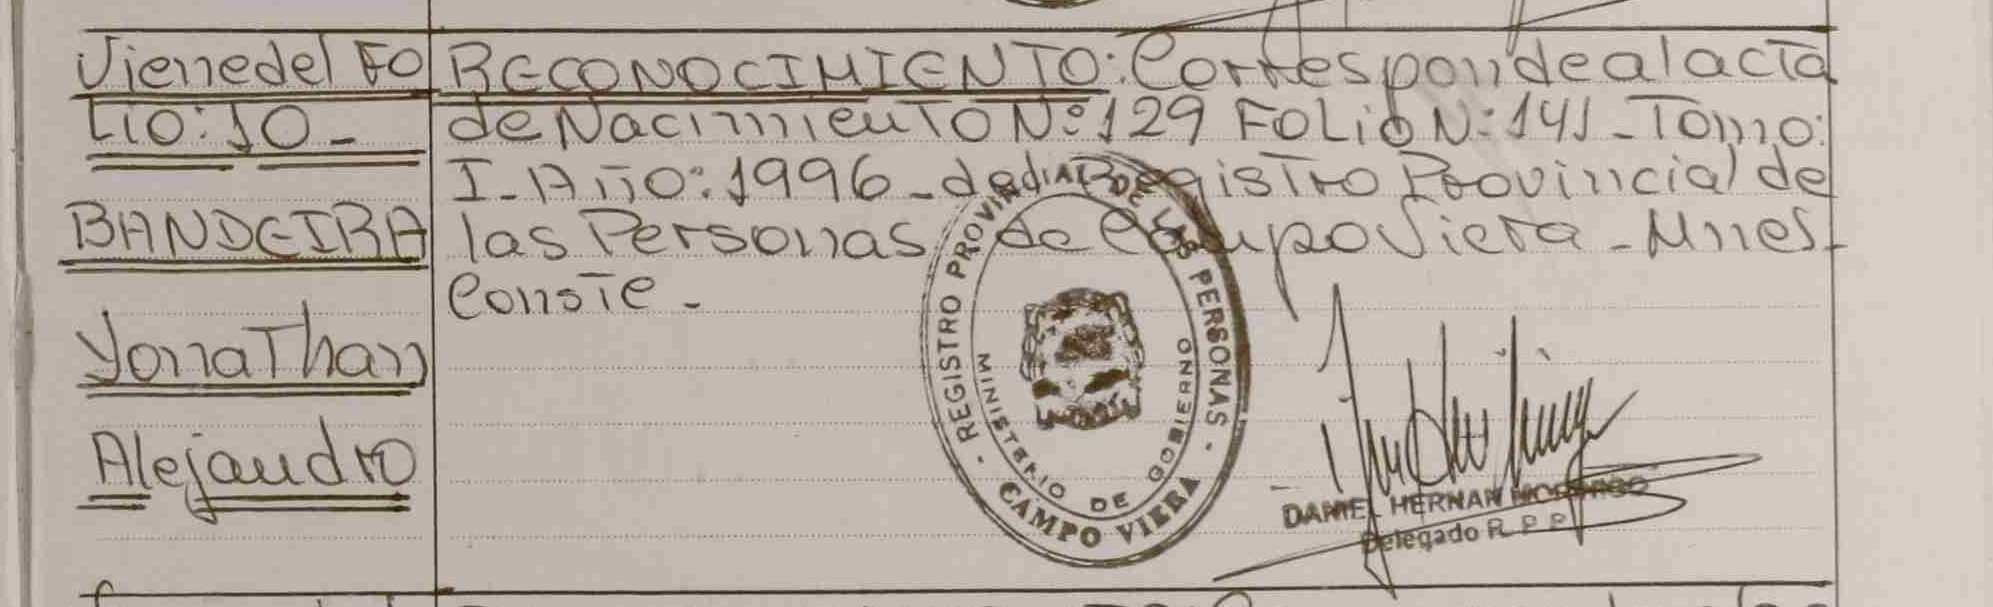 Viene del Fo
lio: 10 -
BANDEIRA
Yonathan
Alejandro
RECONOCIMIENTO: Corresponde al acta
de Nacimiento Nº 129 Folio Nº: 141 - Tomo:
I - Año: 1996 - del Registro Provincial de
las Personas de Campo Viera - Mnes.
Conste -
- REGISTRO PROVINCIAL DE LAS PERSONAS -
MINISTERIO DE GOBIERNO
CAMPO VIERA
DANIEL HERNAN
Delegado R P P